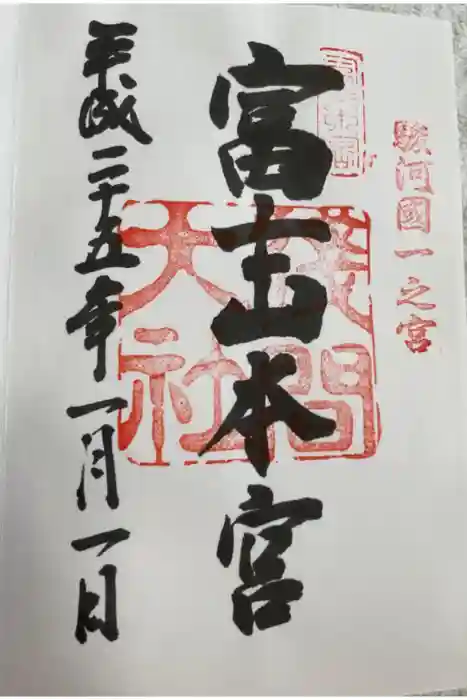 駿河國一之宮
富士山本宮
淺間大社
平成二十五年一月一日